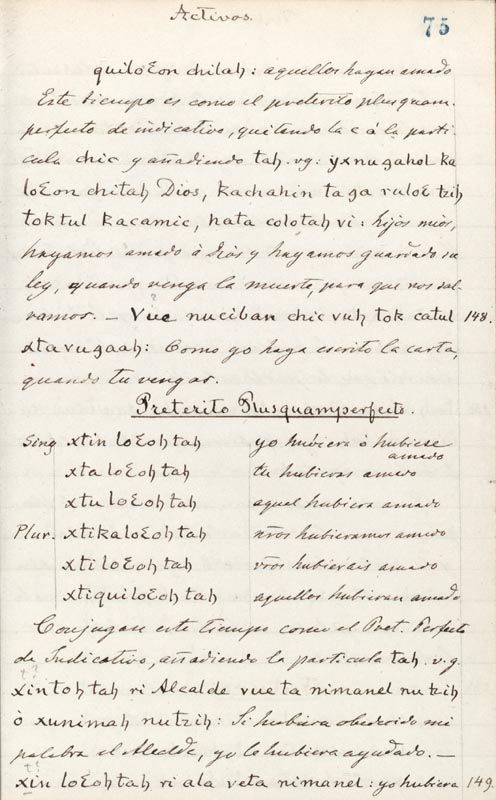 Activos.
75
quiloƐon chitaḥ: aquellos hayan amado
Este tiempo es como el preterito plusquam-
perfecto de indicativo, quitando la c á la parti-
cula chic y añadiendo taḥ. vg: ẏxnugahol ka
loƐon chitaḥ Dios, kachahin taga ruloƐ tziḥ
toktul kacamic, hata colotaḥ vi: hijos mios,
hayamos amado á Dios y hayamos guardado su
ley, quando venga la muerte, para que nos sal-
vamos. – Vue nuciban chic vuḥ tok catul 148.
xtavugaaḥ: Como yo haya escrito la carta,
quando tu vengas.
Preterito Plusquamperfecto.
Sing xtin loƐoḥ taḥ yo hubiera ò hubiese amado
xta loƐoḥ taḥ tu hubieras amado
xtu loƐoḥ taḥ aquel hubiera amado
Plur. xtikaloƐoḥ taḥ nr̃os hubieramos amado
xti loƐoḥ taḥ vr̃os hubierais amado
xtiquiloƐoḥ taḥ aquellos hubieran amado
Conjugan este tiempo como el Pret. Perfecto
de Indicativo, añadiendo la particula taḥ. v.g.
t?
xintoḥ taḥ ri Alcalde vue ta nimanel nutziḥ
ò xunimaḥ nutziḥ: Si hubiera obedecido mi
palabra el Alcalde, yo le hubiera ayudado. –
xin loƐoḥ taḥ ri ala veta nimanel: yo hubiera 149.